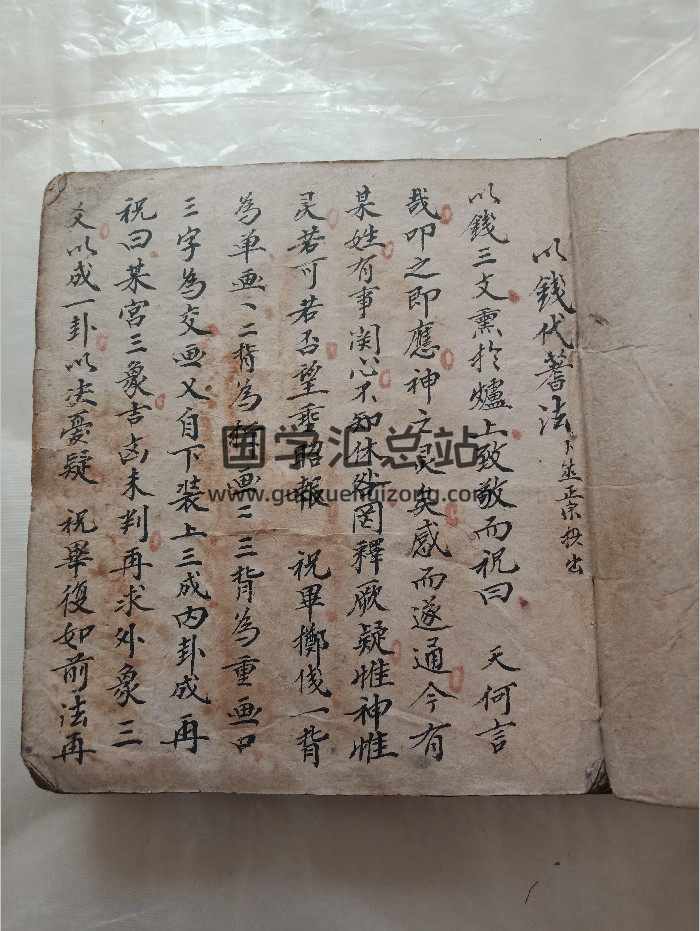 以錢代蓍法 卜筮正宗抄出
以錢三文熏扵爐上致敬而祝曰 天何言
哉叩之即應神之灵矣感而遂通今有
某姓有事関心不知休咎罔釋厥疑惟神惟
灵若可若否望垂昭報 祝畢擲伐一背
為单画丶二背為拆画〓三背為重画口
三字為交画乂自下装上三成内卦成再
祝曰某宫三象吉凶未判再求外象三
爻以成一卦以决憂疑 祝畢復如前法再
国学汇总站
www.guoxuehuizong.com